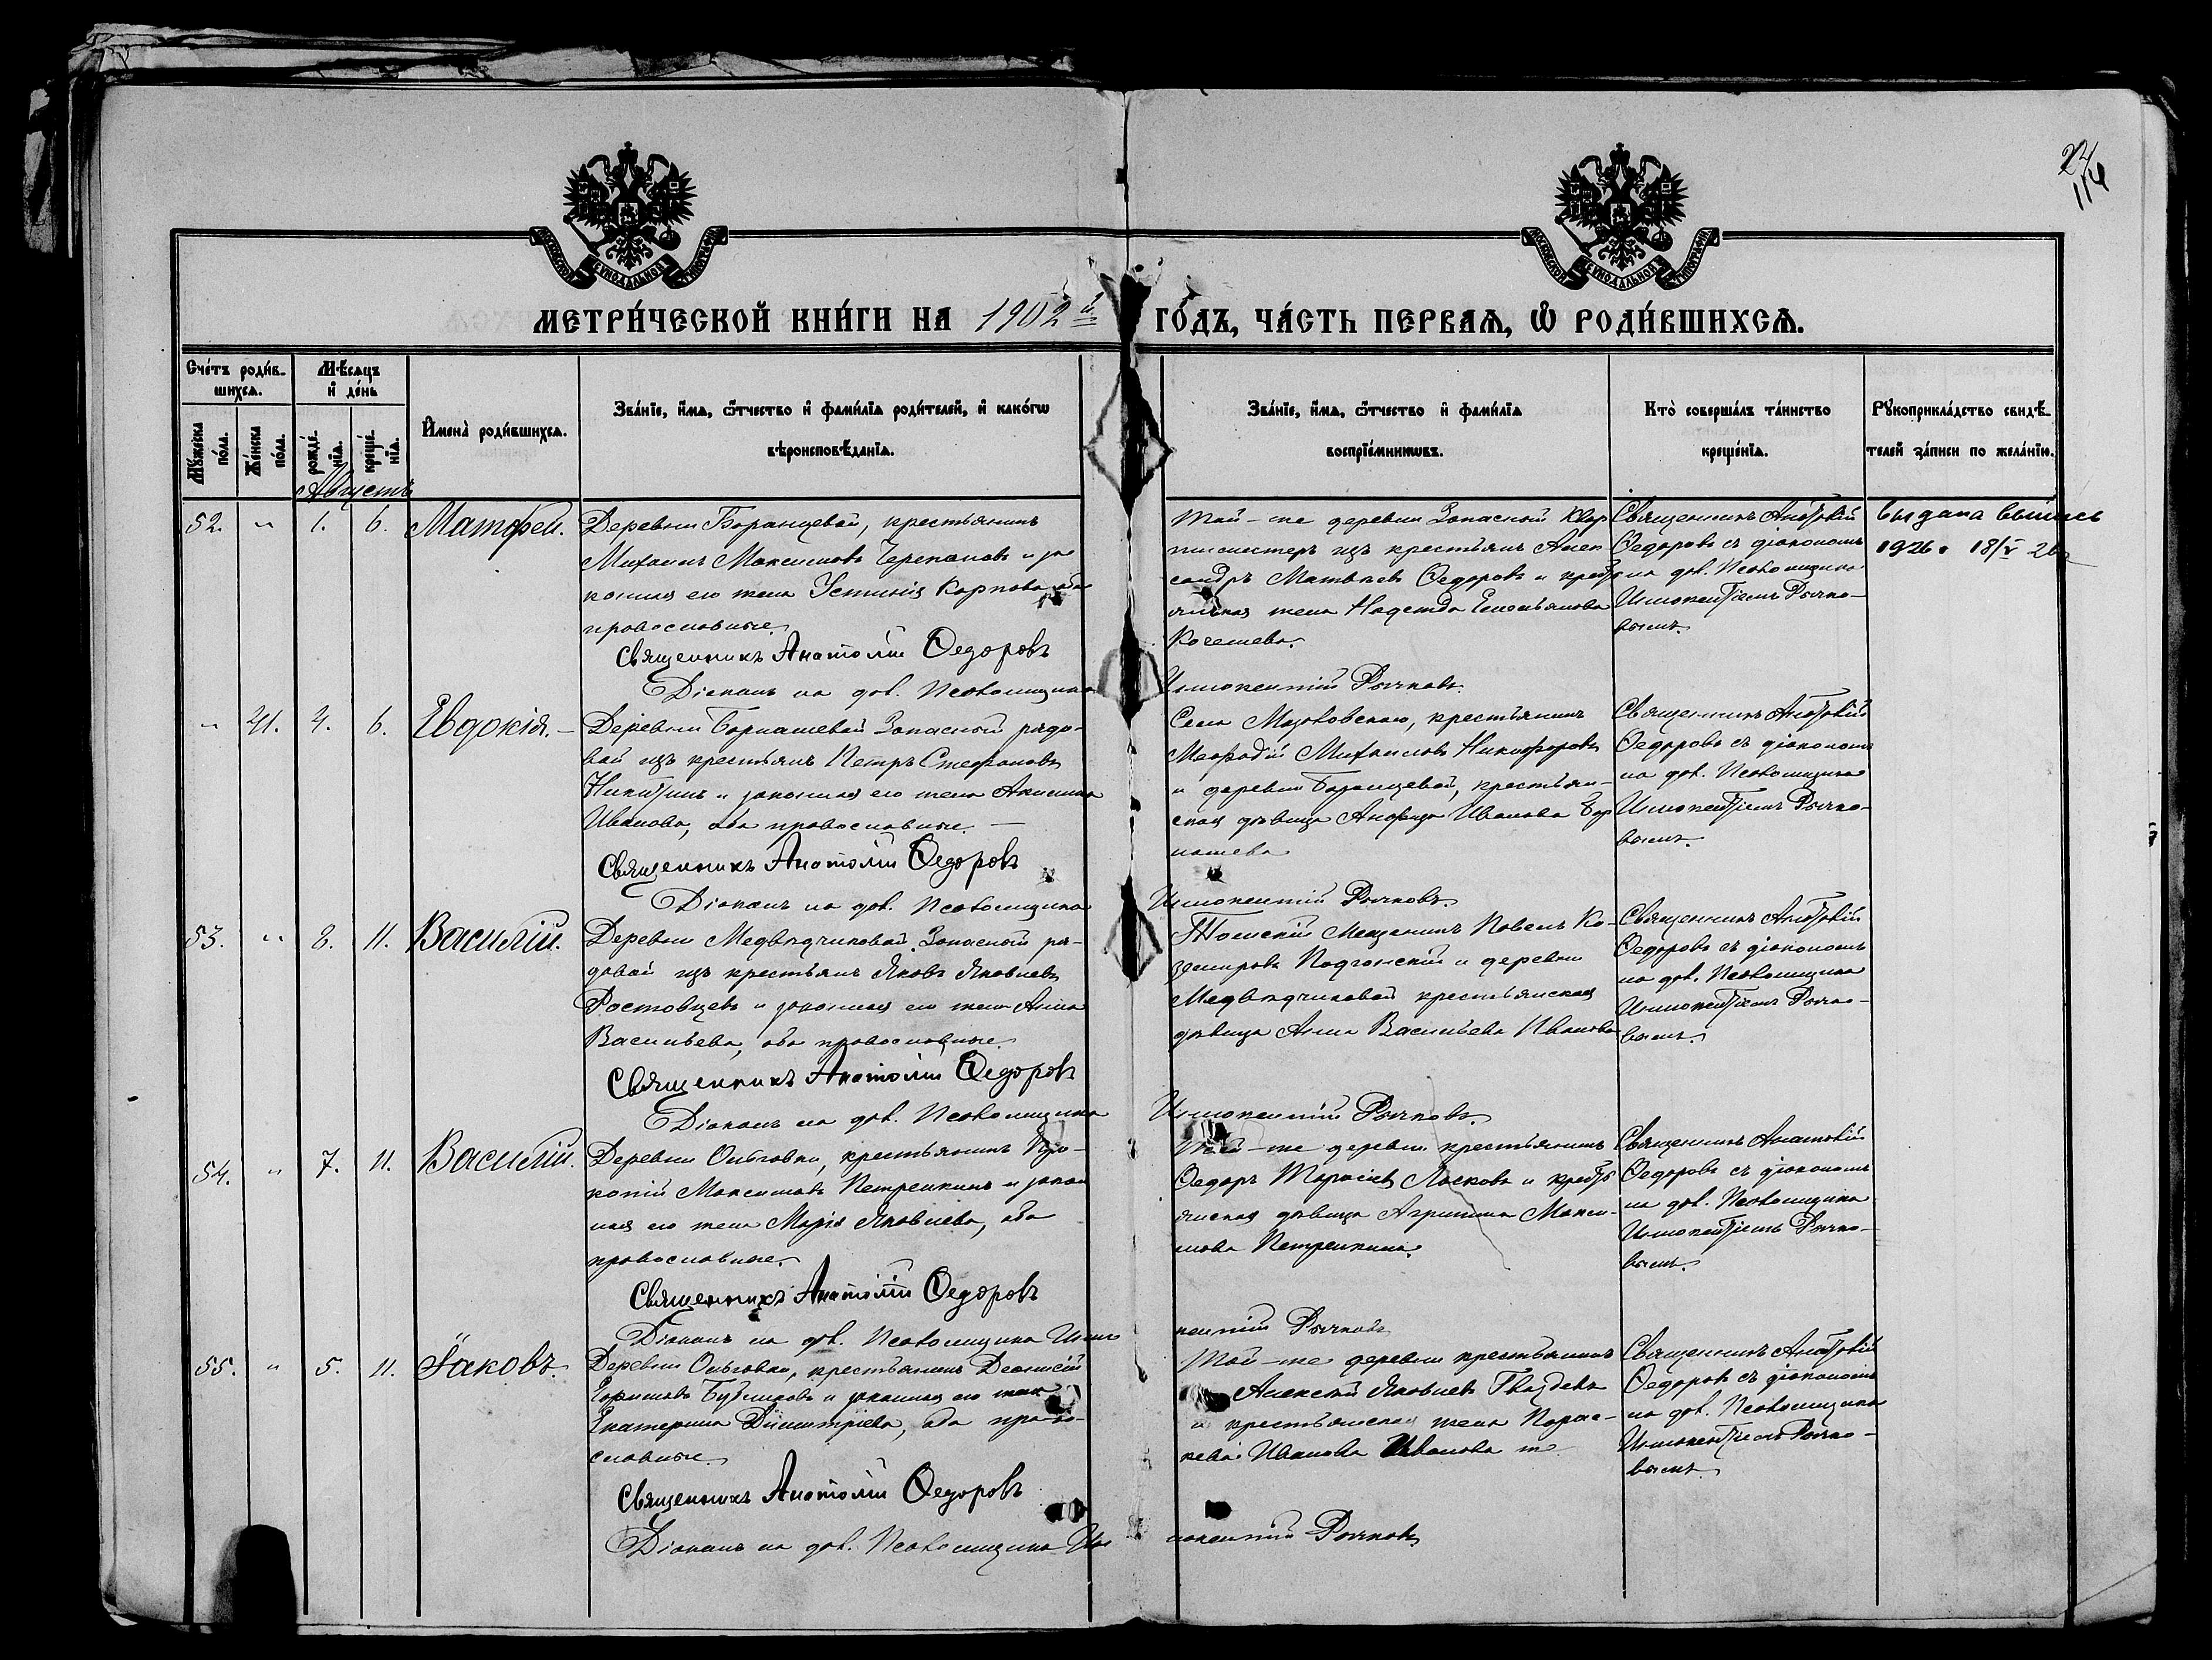 22
116
МОСКОВСКОЙ СѴНОДАЛЬНОЙ ТИПОГРАФІИ
МОСКОВСКОЙ СѴНОДАЛЬНОЙ ТИПОГРАФІИ
МЕТРИ́ЧЕСКОЙ КНИ́ГИ НА 1902й ГО́ДЪ, ЧА́СТЬ ПЕ́РВАѦ, Ѡ҆ РОДИ́ВШИХСѦ.
Сче́тъ роди́в-
шихсѧ.
Мѣ́сѧцъ
и҆ де́нь
Мꙋ́жеска
по́ла.
Же́нска
по́ла.
рожде́-
нїѧ.
креще́-
нїѧ.
И҆мена̀ роди́вшихсѧ.
Зва́нїе, и҆́мѧ, ѻ҆́тчество и҆ фами́лїѧ роди́телей, и҆ како́гѡ
вѣроисповѣ́данїѧ.
Зва́нїе, и҆́мѧ, ѻ҆́тчество и҆ фами́лїѧ
воспрїе́мникѡвъ.
Кто̀ соверша́лъ та́инство
креще́нїѧ.
Рꙋкоприкла́дство свидѣ́-
телей за́писи по жела́нїю.
Августъ
52. " 1. 6. Матфей.
Деревни Баранцевой, крестьянинъ
Михаилъ Максимовъ Черепановъ и за
конная его жена Устинія Карпова оба
православные.
Священникъ Анатолій Ѳедоровъ
Діаконъ на дол. Псаломщика
Той-же деревни Запасной Квар
тирмистеръ изъ крестьянъ Алек
сандръ Матвѣевъ Ѳедоровъ и кресть
янская жена Надежда Емельянова
Кочешева.
Иннокентій Рычковъ.
Священникъ Анатолій
Ѳедоровъ съ діакономъ
на дол. Псаломщика
Иннокентіемъ Рычко-
вымъ.
выдана выпись
1926 18/V 26
" 41. 4. 6. Евдокія.
Деревни Борнашевой Запасной рядо-
вой изъ крестьянъ Петръ Стефановъ
Никитинъ и законная его жена Акилина
Иванова, оба православные.
Священникъ Анатолій Ѳедоровъ
Діаконъ на дол. Псаломщика
Села Мазаловскаго, крестьянинъ
Меѳодій Михаиловъ Никифоровъ
и деревни Баранцевой, крестьян-
ская дѣвица Анфиза Иванова Бор
нашева
Иннокентій Рычковъ.
Священникъ Анатолій
Ѳедоровъ съ діакономъ
на дол. Псаломщика
Иннокентіемъ Рычко-
вымъ.
53. " 8. 11. Василій.
Деревни Медвѣдчиковой Запасной ря-
довой изъ крестьянъ Яковъ Яковлевъ
Ростовцевъ и законная его жена Анна
Васильева, оба православные.
Священникъ Анатолій Ѳедоровъ
Діаконъ на дол. Псаломщика
Томскій Мещанинъ Павелъ Ка-
земировъ Подгонскій и деревни
Медвѣдчиковой крестьянская
дѣвица Анна Васильева Иванова
Иннокентій Рычковъ.
Священникъ Анатолій
Ѳедоровъ съ діакономъ
на дол. Псаломщика
Иннокентіемъ Рычко-
вымъ.
54. " 7. 11. Василій.
Деревни Ольговки, крестьянинъ Про-
копій Максимовъ Петренкинъ и закон
ная его жена Марія Яковлева, оба
православные.
Священникъ Анатолій Ѳедоровъ
Діаконъ на дол. Псаломщика Инно
Той-же деревни крестьянинъ
Ѳедоръ Тарасіевъ Ласковъ и кресть
янская дѣвица Агрипина Макси-
мова Петренкина.
кентій Рычковъ
Священникъ Анатолій
Ѳедоровъ съ діакономъ
на дол. Псаломщика
Иннокентіемъ Рычко-
вымъ.
55. " 5. 11. Іаковъ.
Деревни Ольговки, крестьянинъ Деонисій
Ефимовъ Бубликовъ и законная его жена
Екатерина Димитріева, оба право-
славные.
Священникъ Анатолій Ѳедоровъ
Діаконъ на дол. Псаломщика Ин
Той-же деревни крестьянинъ
Алексѣй Яковлевъ Гвоздевъ
и крестьянская жена Парас-
кева Иванова Иванова
нокентій Рычковъ
Священникъ Анатолій
Ѳедоровъ съ діакономъ
на дол. Псаломщика
Иннокентіемъ Рычко-
вымъ.